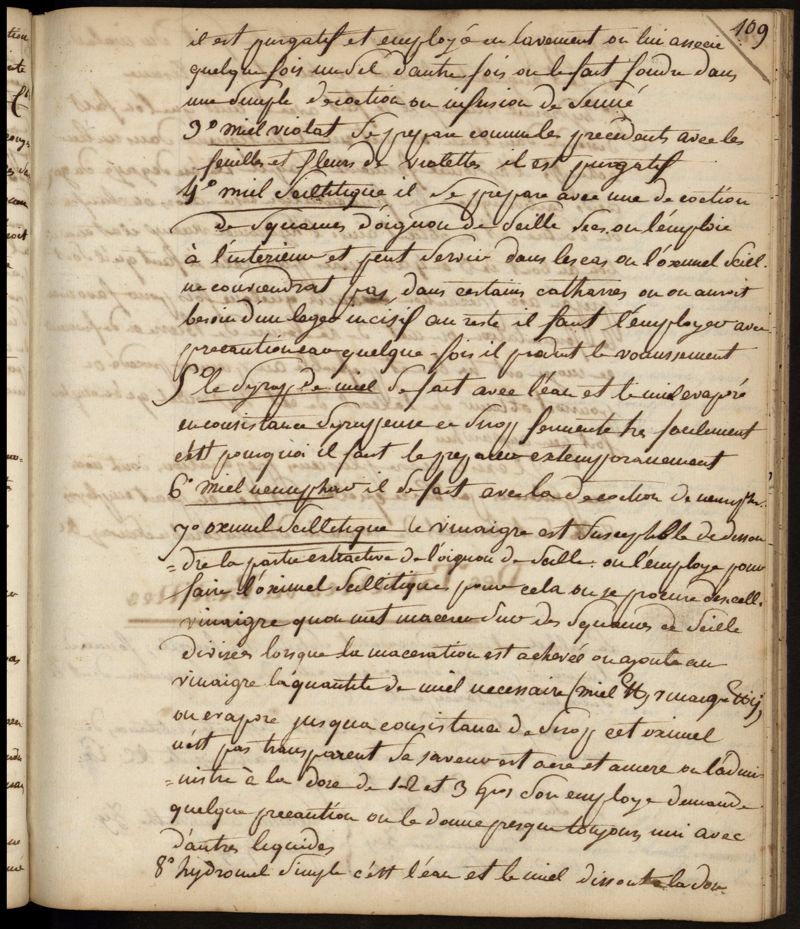 109
il est purgatif et employé en lavement on lui associe
quelque fois un sel d'autre fois on le fait fondre dans
une simple decoction ou infusion de senné
3º miel violat se prepare comme les precedents avec les
feuilles et fleurs de violettes il est purgatif
4º miel scillitique il se prepare avec une decoction
de squames d'oignon de scille secs. on l'emploie
à l'interieur et peut servir dans les cas ou l'oximel scill.
ne conviendrat pas, dans certains catharres ou on auroit
besoin d'un leger incisif au reste il faut l'employer avec
precaution car quelque-fois il produit le vomissement
5º le syrop de miel se fait avec l'eau et le miel evaporé
en consistance syrupeuse ce sirop fermente tres facilement
c'est pourquoi il faut le preparer extemporanement
6º miel nenuphar il se fait avec la decoction de nenuphr.
7º oximel scillitique le vinaigre est susceptible de disson
=dre la partie extractive de l'oignon de scille. on l'employe pour
faire l'oximel scillitique pour cela on se procure d'excell.
vinaigre qu'on met macerer sur des squames de scille
divisées lorsque la maceration est achevée on ajoute au
vinaigre la quantité de miel necessaire (miel vinaigre
on evapore jusqua consistance de sirop cet oximel
n'est pas transparent sa saveur est acre et amere on l'admi-
=nistre à la dose de 1-2 et 3 gros son employe demande
quelque precaution on le donne presque toujours uni avec
d'autres liquides
8º hydromel simple c'est l'eau et le miel dissout la dose